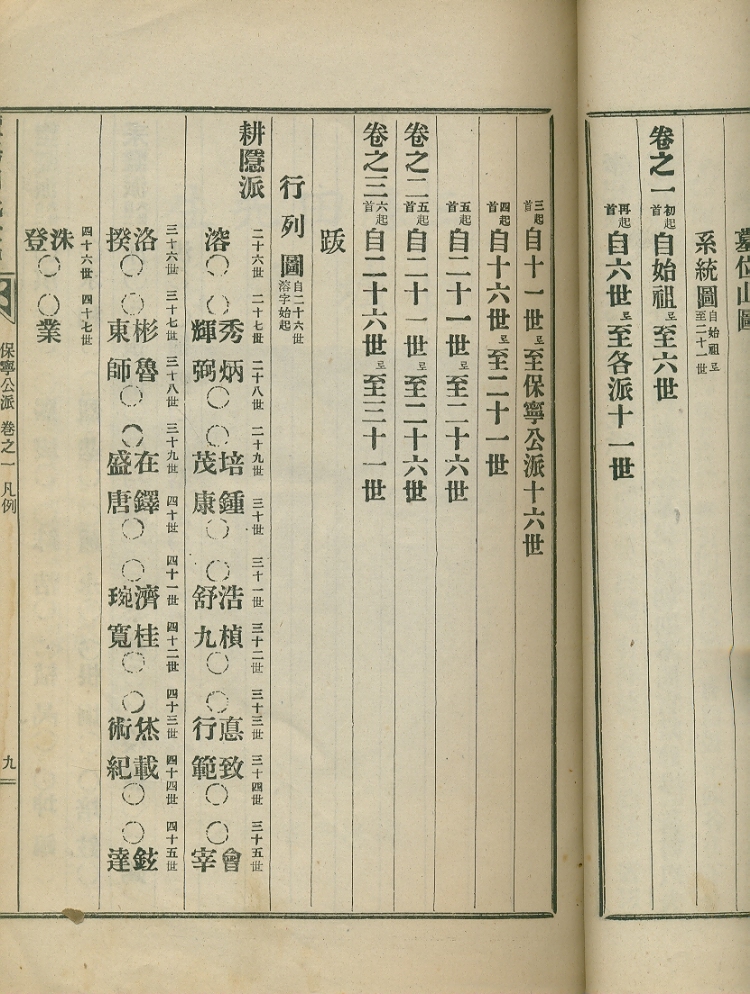 墓位山圖
系統圖自始祖로至二十一世
卷之一初起首自始祖로至六世
再起首自六世로至各派十一世
三起首自十一世로至保寧公派十六世
四起首自十六世로至二十一世
五起首自二十一世로至二十六世
卷之二五起首自二十一世로至二十六世
卷之三六起首自二十六世로至三十一世
跋
行列圖自二十六世溶字始起
耕隱派
二十六世 二十七世 二十八世 二十九世 三十世 三十一世 三十二世 三十三世 三十四世 三十五世
溶〇 〇秀 炳〇 〇培 鍾〇 〇浩 楨〇 〇悳 致〇 〇會
輝 弼 茂 康 舒 九 行 範 宰
三十六世 三十七世 三十八世 三十九世 四十世 四十一世 四十二世 四十三世 四十四世 四十五世
洛〇 〇彬 魯〇 〇在 鐸〇 〇濟 桂〇 〇烋 載〇 〇鉉
揆 東 師 盛 唐 琬 寬 術 紀 達
四十六世 四十七世
洙〇 〇業
登
保寧公派 卷之一 凡例
九